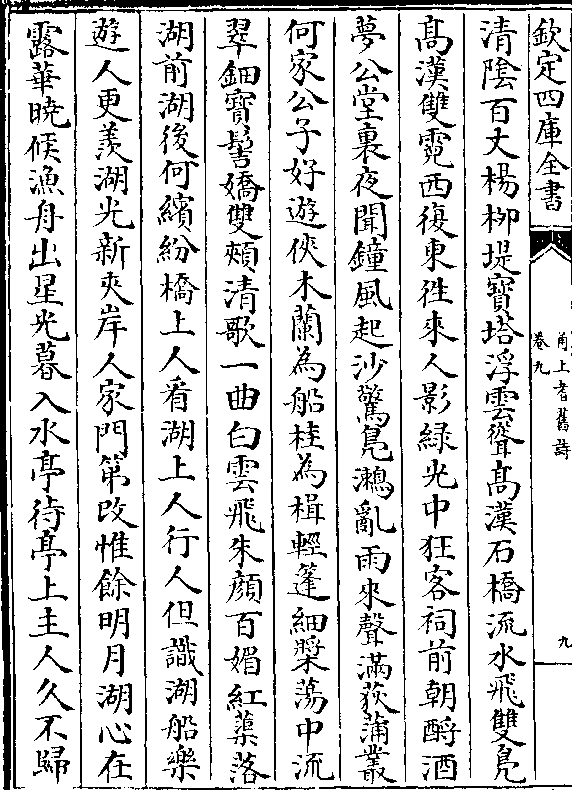 欽定四庫全書
甬上耆舊詩
卷九
九
清陰百丈楊栁堤寳塔浮雲聳髙漢石橋流水飛雙鳬
髙漢雙霓西復東徃來人影緑光中狂客祠前朝酹酒
夢公堂裏夜聞鐘風起沙驚鳬鷀亂雨來聲滿荻蒲叢
何家公子好遊俠木蘭為船桂為楫輕篷細槳蕩中流
翠鈿寳髻嬌雙頰清歌一曲白雲飛朱顔百媚紅蕖落
湖前湖後何繽紛橋上人看湖上人行人但識湖船樂
遊人更羨湖光新夾岸人家門第改惟餘明月湖心在
露華曉候漁舟出星光暮入水亭待亭上主人久不歸